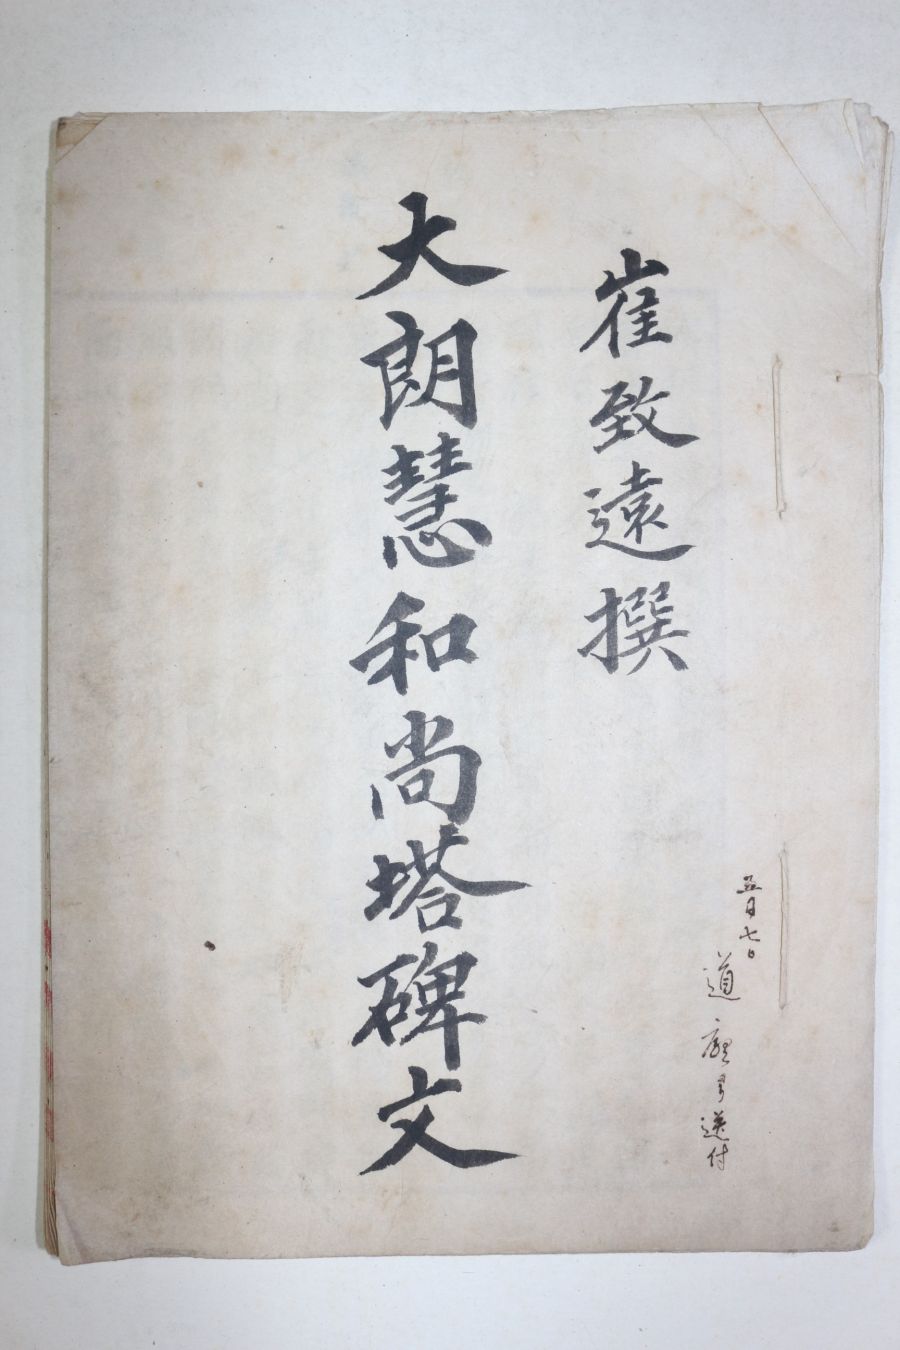 五月七日
道廳ヨリ送付
崔致遠撰
大朗慧和尚塔碑文